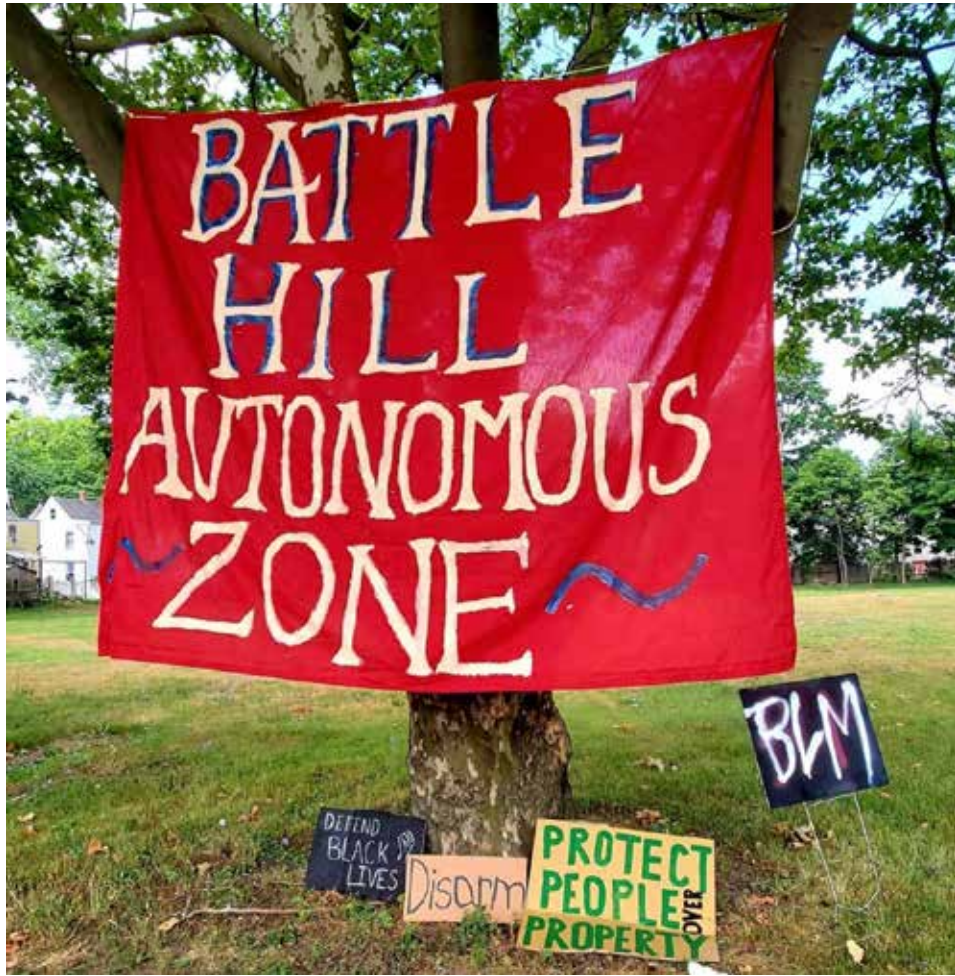 BATTLE
HILL
AUTONOMOUS
~ZONE~
BLM
DEFEND
BLACK
LIVES
Disarm
PROTECT
PEOPLE OVER
PROPERTY